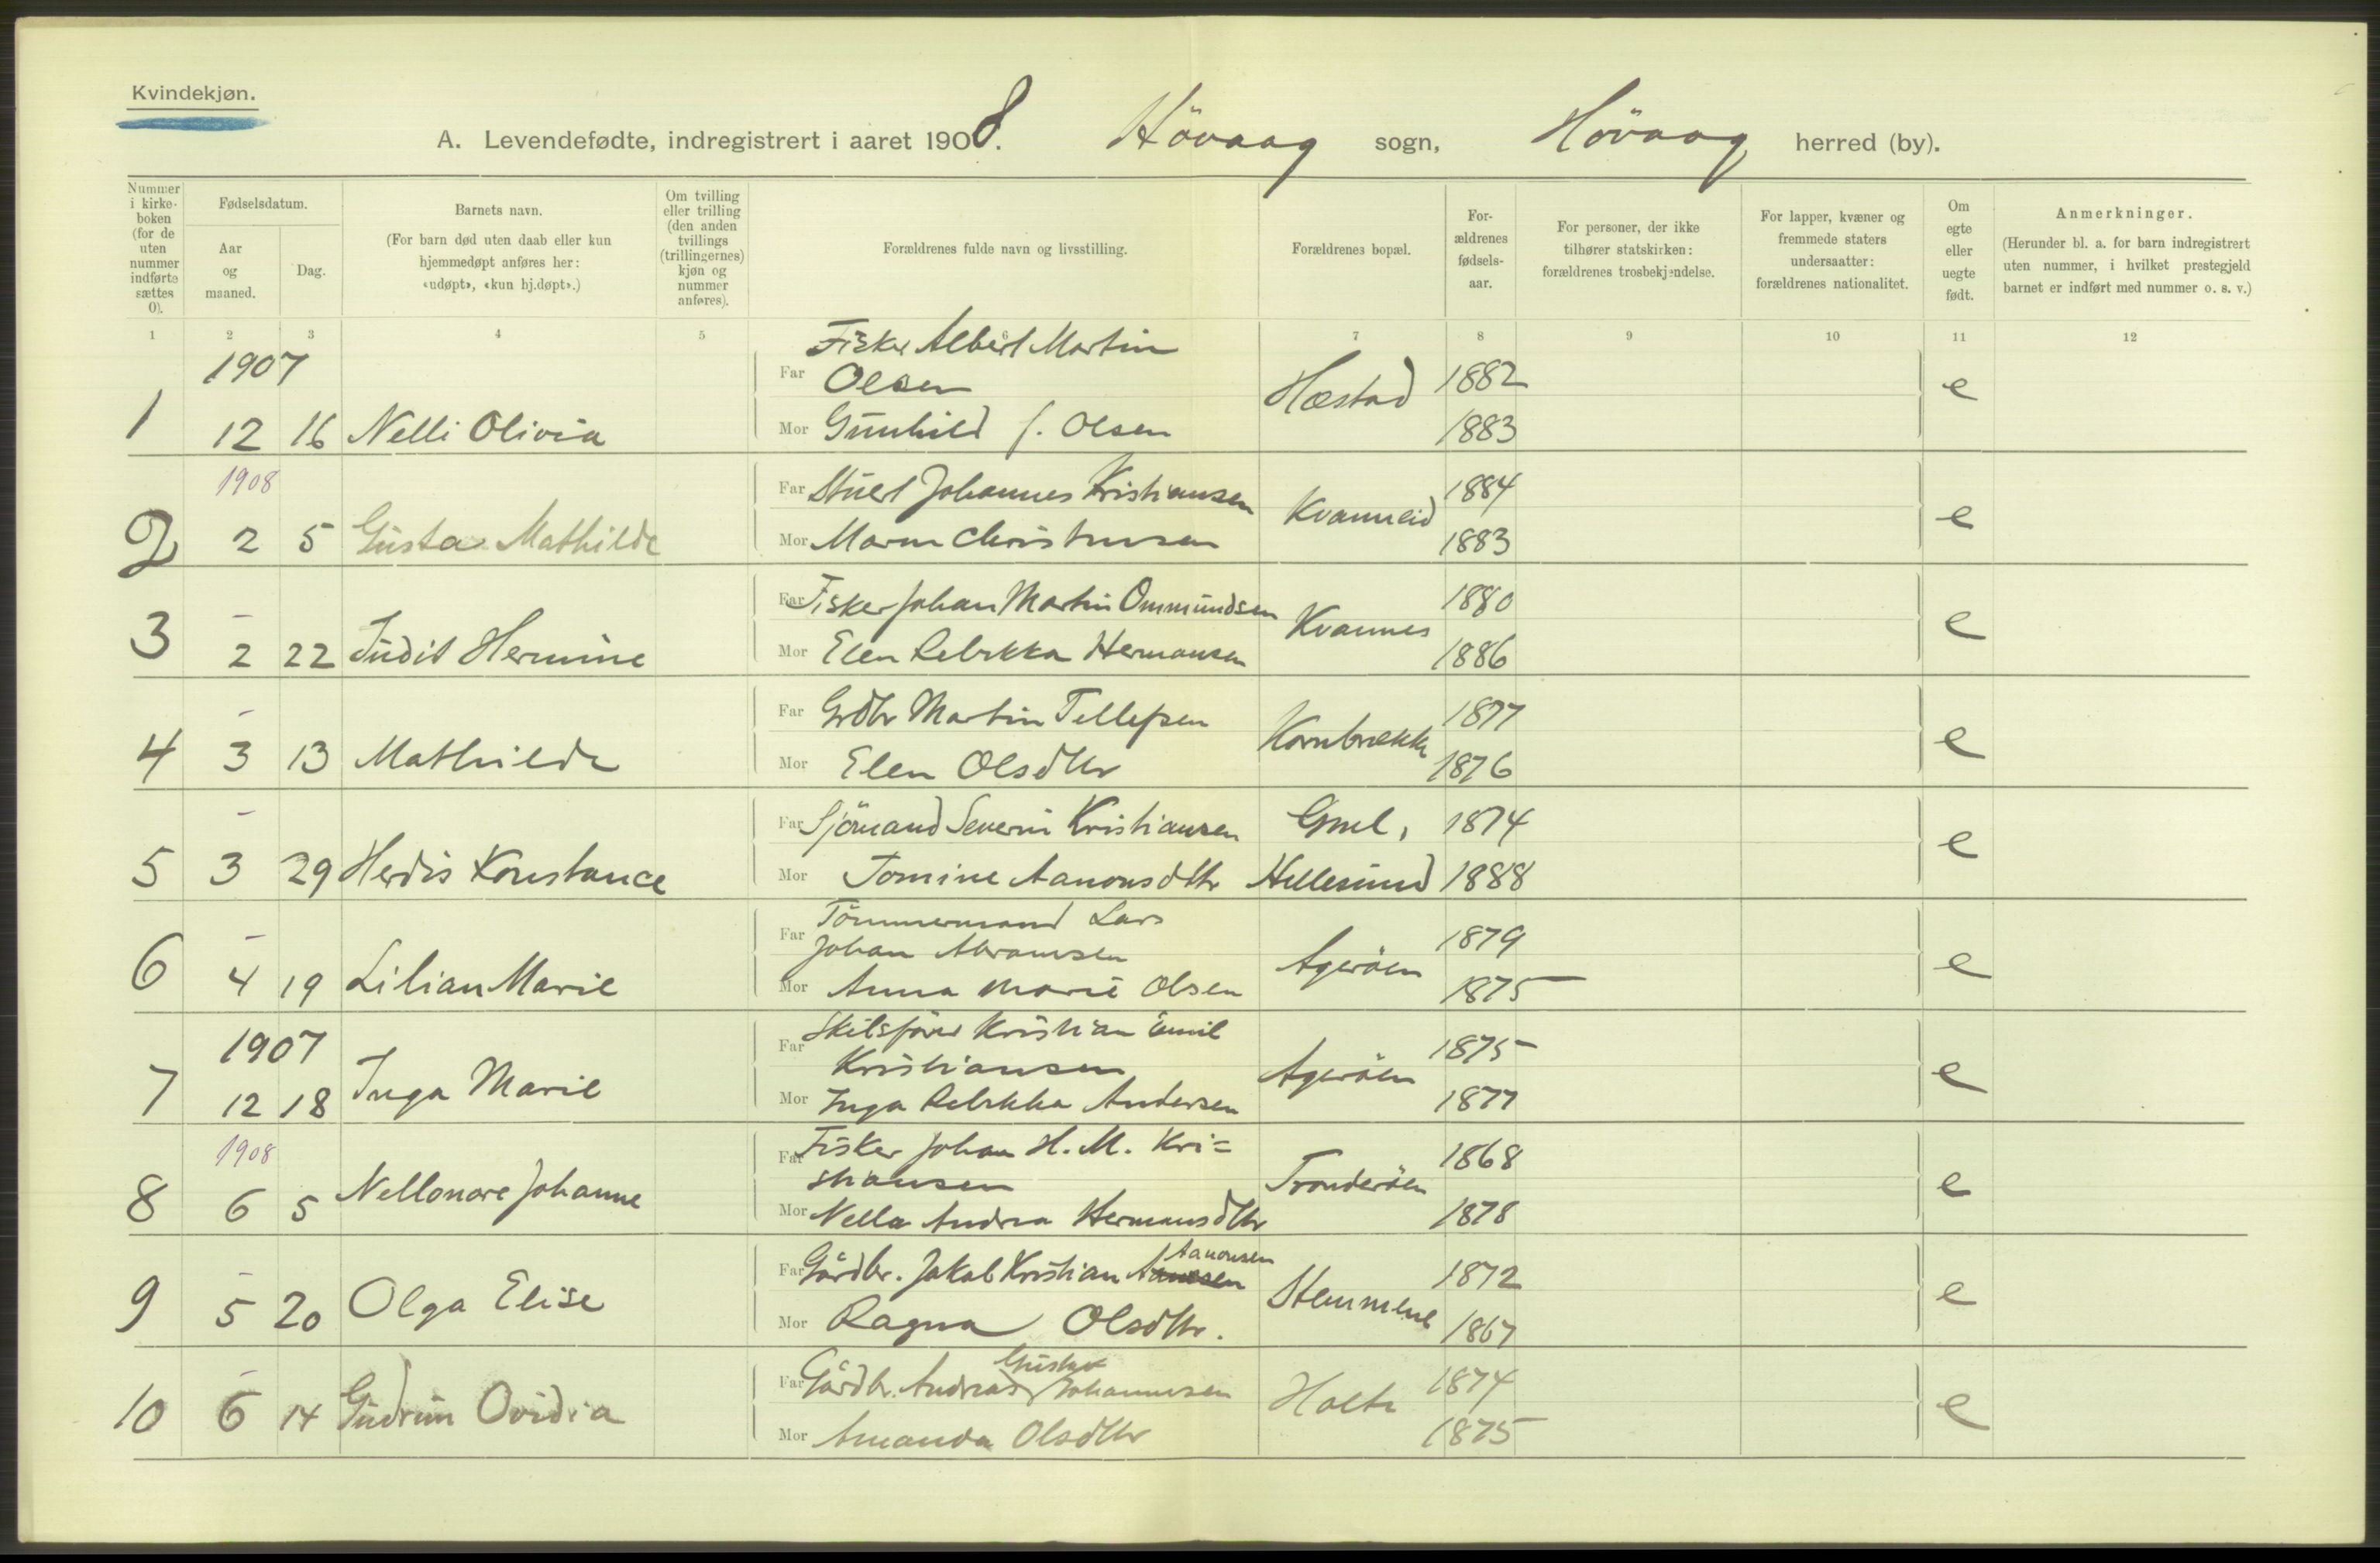 Kvindekjøn.
A. Levendefødte, indregistrert i aaret 1908. Høvaag sogn, Høvaag herred (by).
Nummer i kirkeboken (for de uten nummer indførte sættes 0).
Fødselsdatum.
Aar og maaned.
Dag.
Barnets navn.
(For barn død uten daab eller kun hjemmedøpt anføres her: «udøpt», «kun hj.døpt».)
Om tvilling eller trilling (den anden tvillings (trillingernes) kjøn og nummer anføres).
Forældrenes fulde navn og livsstilling.
Forældrenes bopæl.
Forældrenes fødselsaar.
For personer, der ikke tilhører statskirken: forældrenes trosbekjendelse.
For lapper, kvæner og fremmede staters undersaatter: forældrenes nationalitet.
Om egte eller uegte født.
Anmerkninger.
(Herunder bl. a. for barn indregistrert uten nummer, i hvilket prestegjeld barnet er indført med nummer o. s. v.)
1 2 3 4 5 6 7 8 9 10 11 12
1907 Far Fisker Albert Martin
Olsen Hæstad 1882 e
1 12 16 Nelli Olivia Mor Gunhild f. Olsen 1883
1908 Far Stuert Johannes Kristiansen Kvanneid 1884 e
2 2 5 Gusta Mathilde Mor Maren Christensen 1883
- Far Fisker Johan Martin Ommundsen Kvannes 1880 e
3 2 22 Judit Hermine Mor Elen Rebekka Hermansen 1886
- Far Grdbr Martin Tellefsen Kornbrekke 1877 e
4 3 13 Mathilde Mor Elen Olsdtr 1876
- Far Sjömand Severin Kristiansen Gml. 1874 e
5 3 29 Herdis Konstance Mor Tomine Aanonsdtr Hellesund 1888
- Far Tömmermand Lars
Johan Abramsen Ageröen 1879 e
6 4 19 Lilian Marie Mor Anna Marie Olsen 1875
1907 Far Skibsförer Kristian Emil
Kristiansen Ageröen 1875 e
7 12 18 Inga Marie Mor Inga Rebekka Andersen 1877
1908 Far Fisker Johan H. M. Kri=
stiansen Tronderöen 1868 e
8 6 5 Nellonore Johanne Mor Nella Andrea Hermansdtr 1878
Aanonsen
- Far Gårdbr. Jakob Kristian Stemmene 1872 e
9 5 20 Olga Elise Mor Ragna Olsdtr. 1867
Gustav
- Far Gårdbr. Andreas Johannesen Holte 1874 e
10 6 14 Gudrun Ovidia Mor Amanda Olsdtr 1875